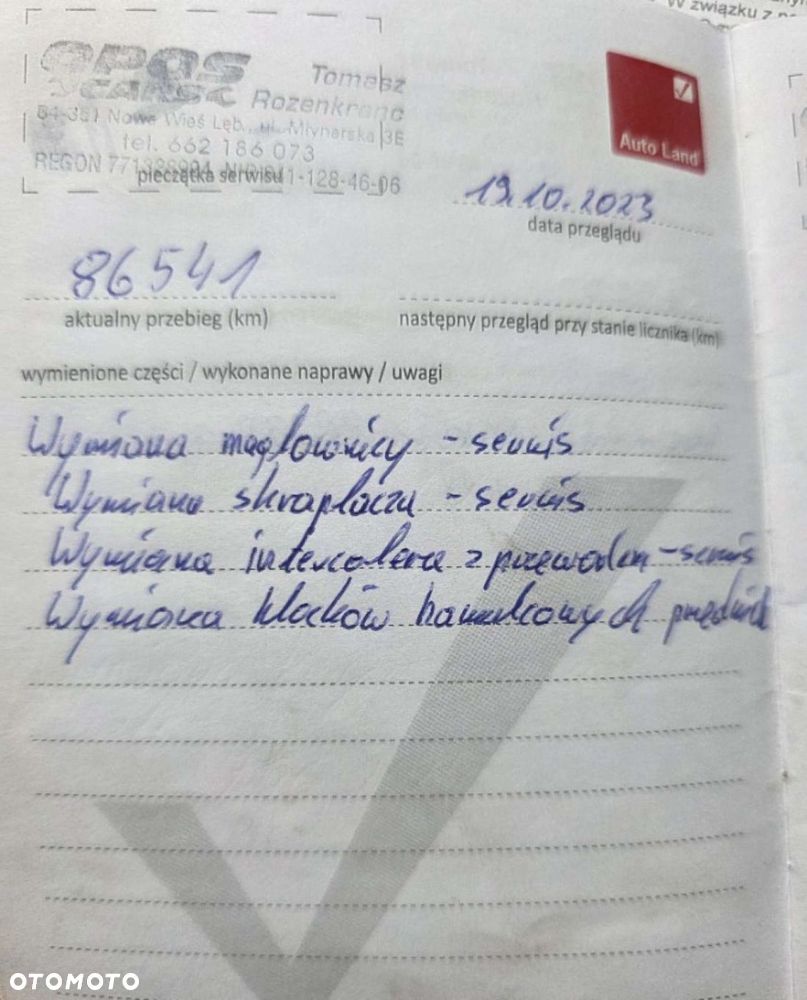 W związku z
OPAS
CARS
Tomasz
Rozenkranc
84-351 Nowa Wieś Lęb., ul. Młynarska 3E
tel. 662 186 073
REGON
pieczątka serwisu
1-128-46-06
Auto Land
19.10.2023
data przeglądu
86541
aktualny przebieg (km)
następny przegląd przy stanie licznika (km)
wymienione części / wykonane naprawy / uwagi
Wymiana magłownicy - serwis
Wymiana skraplacza - serwis
Wymiana intercolera z przewodem - serwis
Wymiana klocków hamulcowych przednich
OTOMOTO